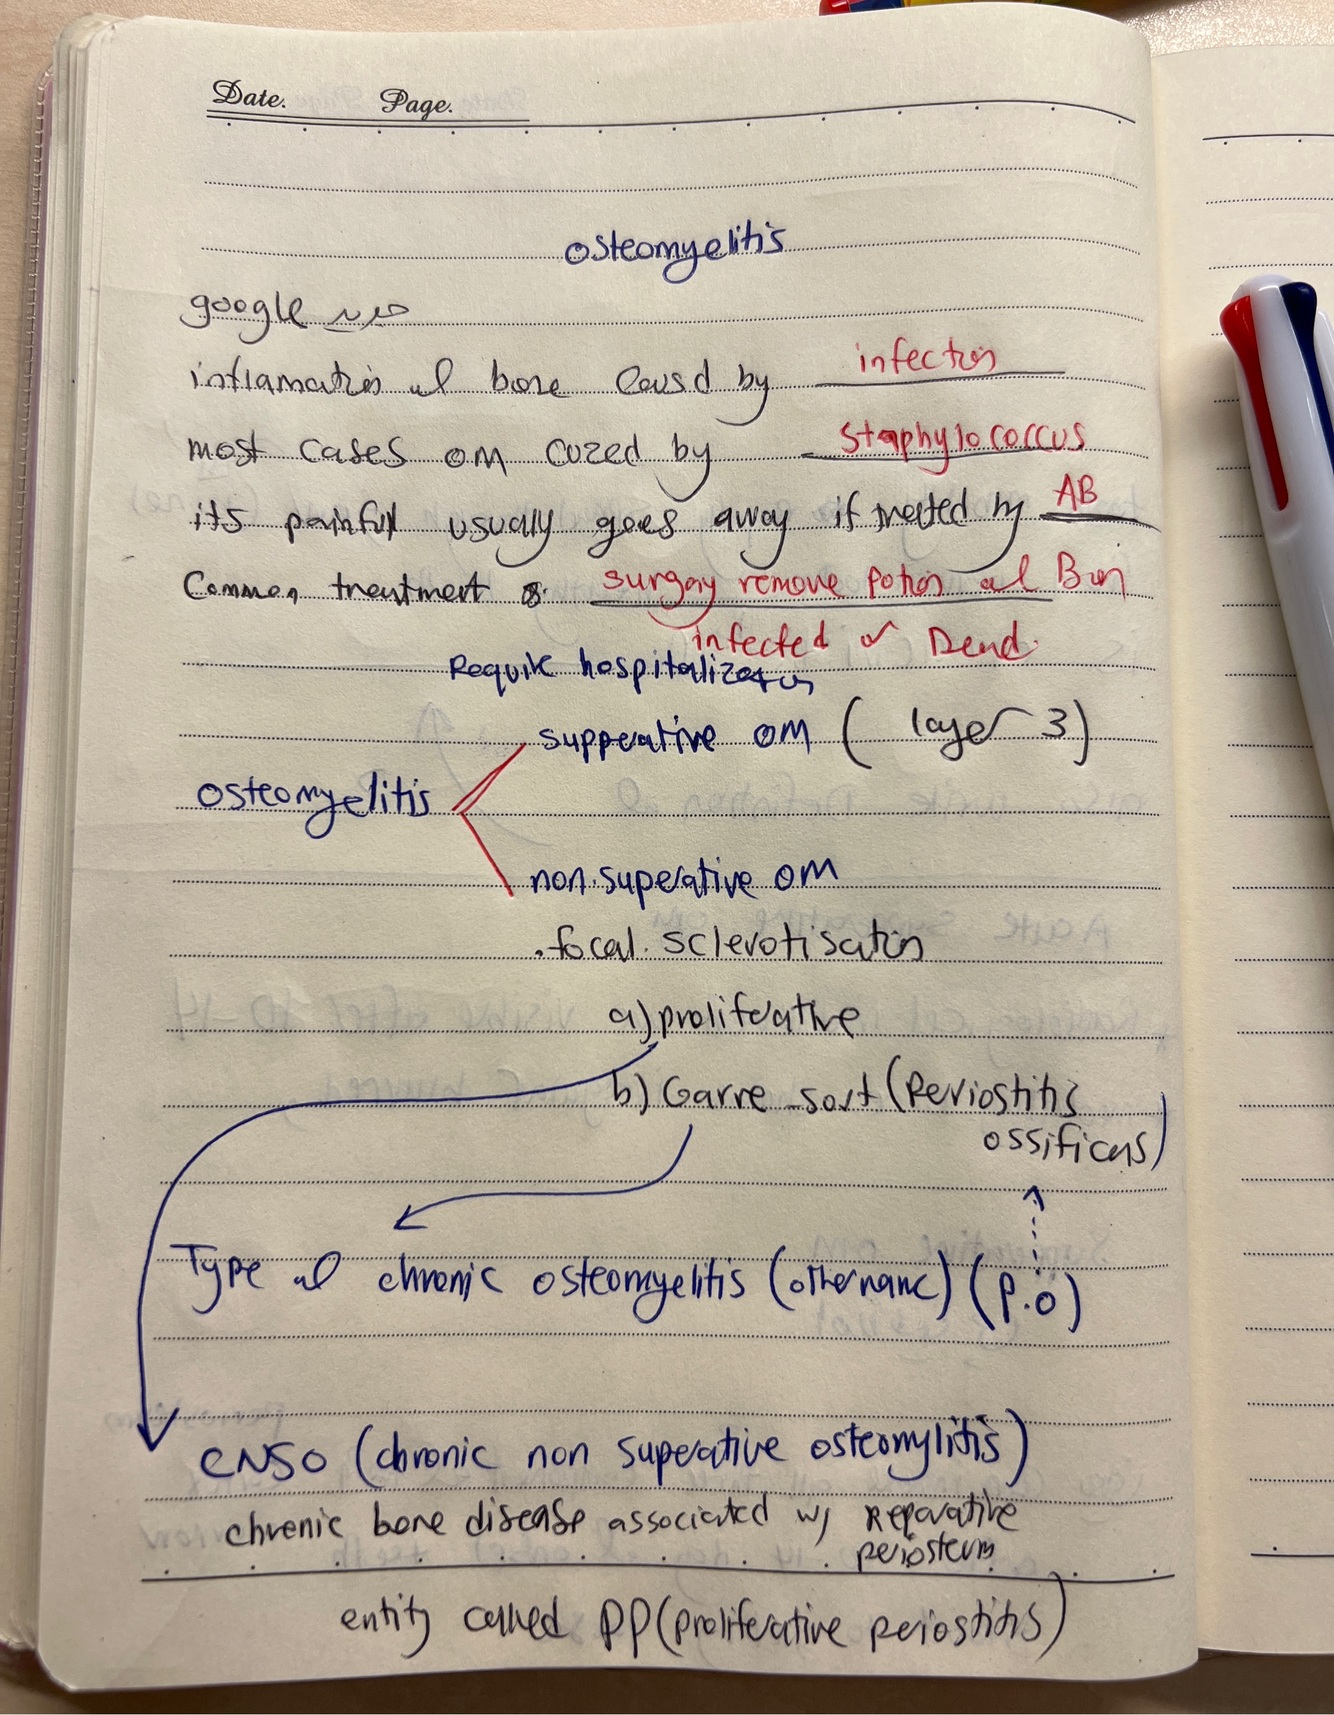 Date. Page.
osteomyelitis
google
inflamation of bone caused by infection
most cases om cuzed by staphylococcus
its painful usually goes away if treated by AB
Common treatment : surgay remove potion of Bon
infected or Dead.
Requir hospitalization
osteomyelitis
supperative om (layer 3)
non.superative om
.focal. sclerotisation
a) proliferative
b) Garre -sort (Periostitis
ossificans)
Type of chronic osteomyelitis (other name) (P.O)
CNSO (chronic non superative osteomylitis)
chrenic bone disease associated w/ Reparative
periosteum
entity called PP (proliferative periostitis)